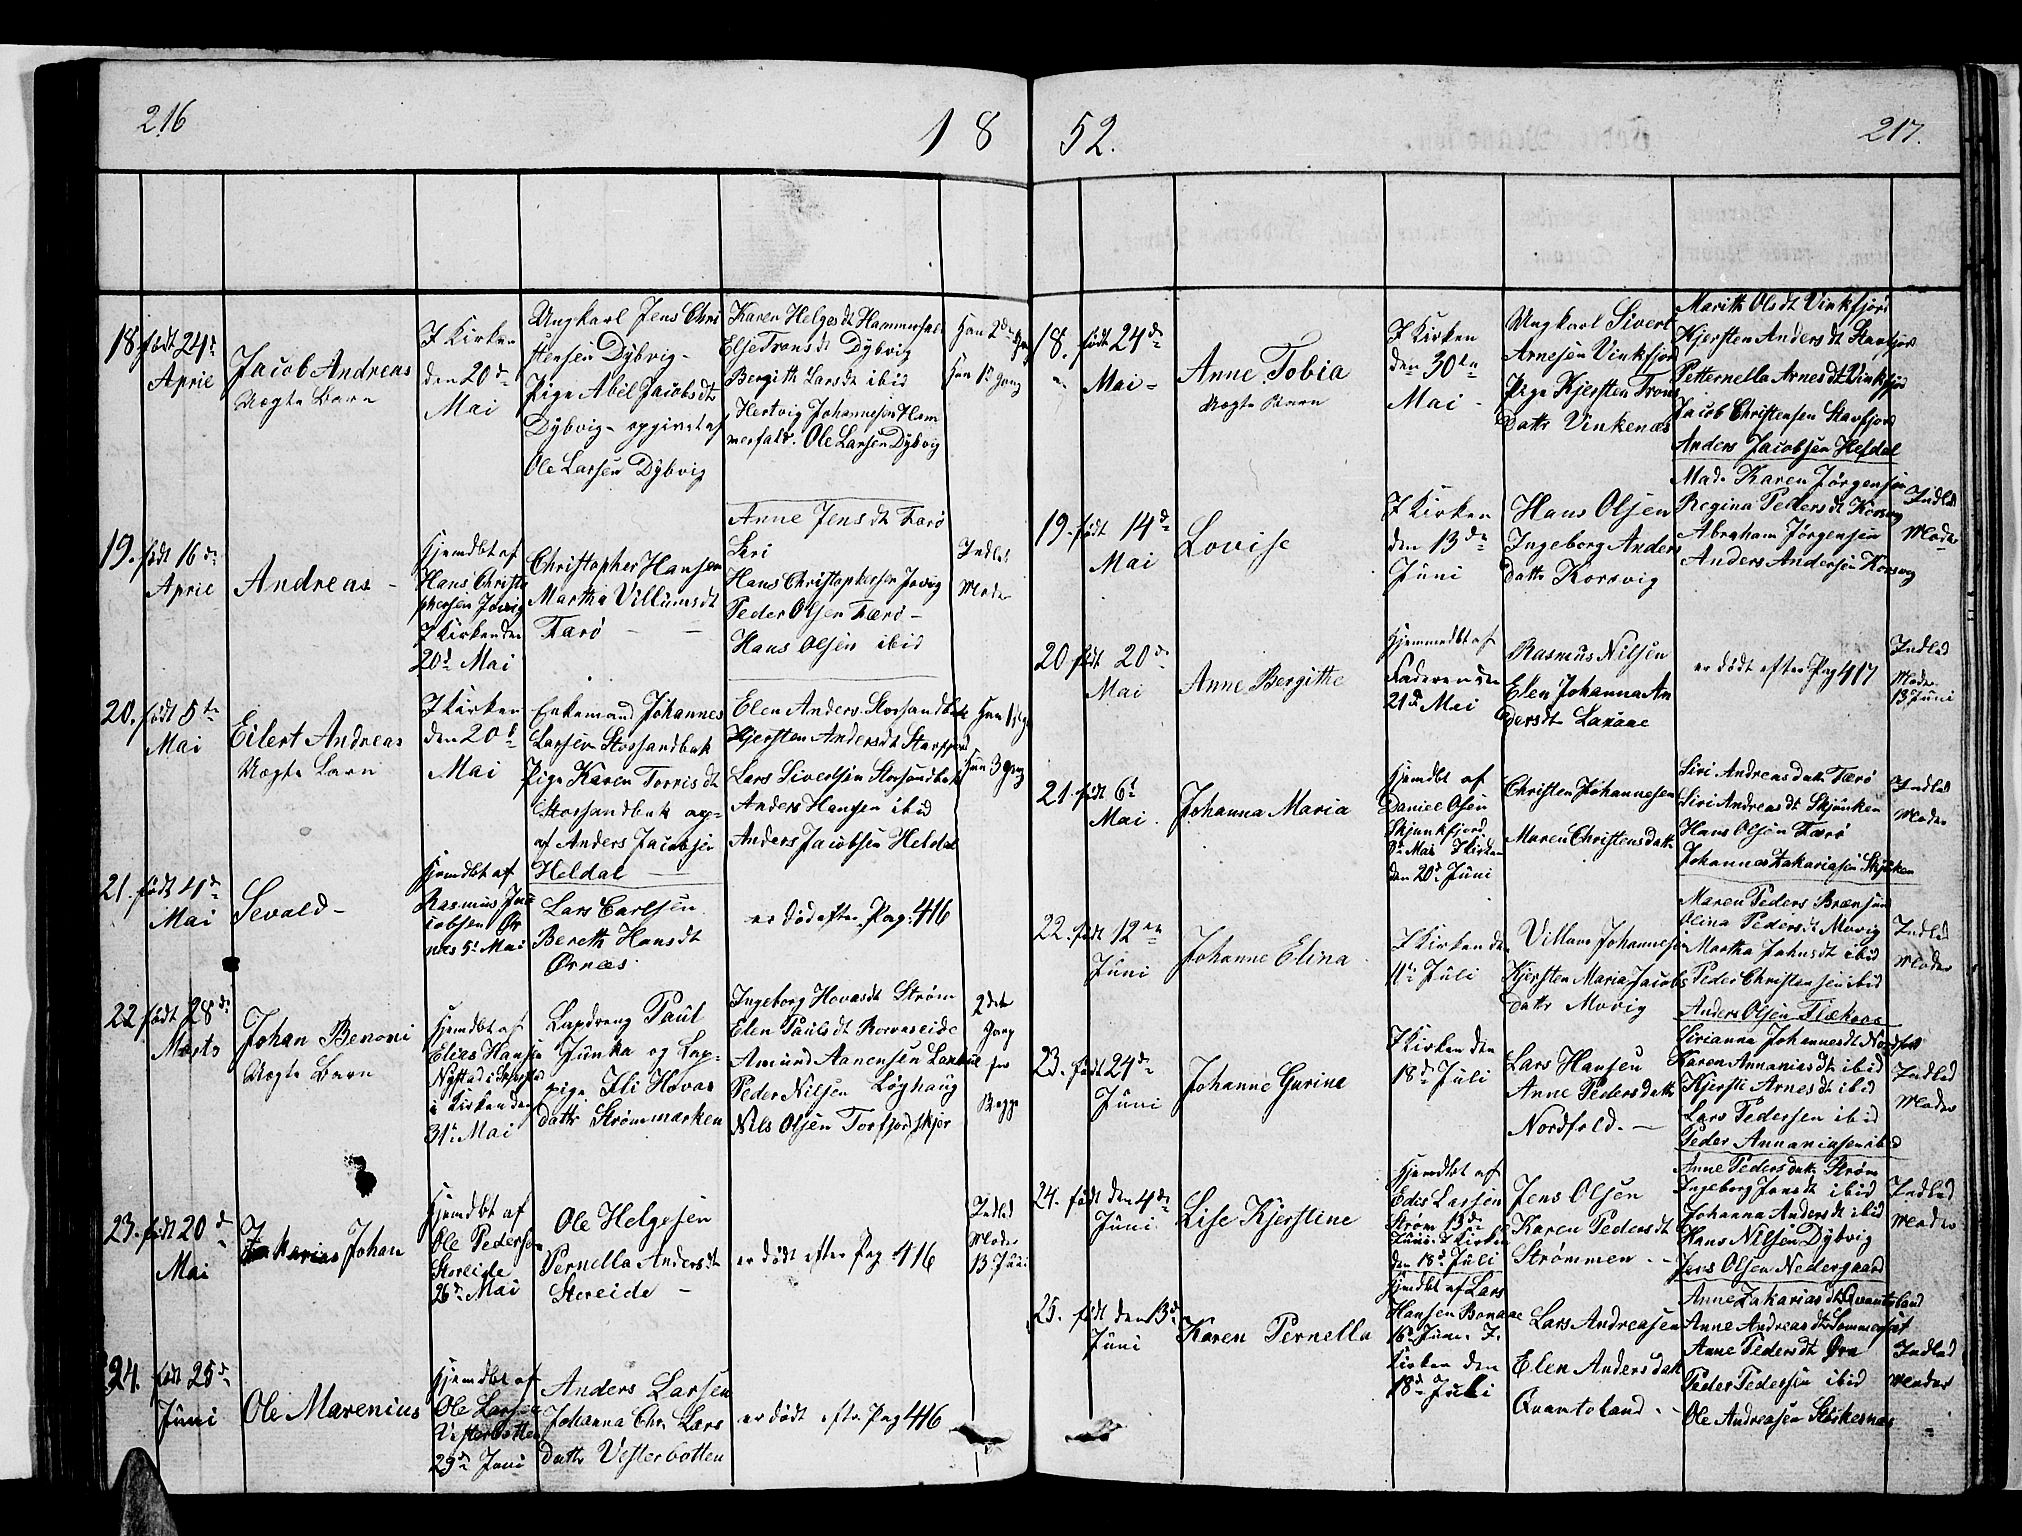 216
18
18 født 24de
Aprie
Jacob Andreas
Uægte Barn
I Kirken
den 20de
Mai
Ungkarl Jens Chri
stensen Dybvig-
Pige Abel Jacobsdt
Dybvig- opgivet af
Ole Larsen Dybvig
Karen Helgesdt Hammerfalv
Else Tronsdt Dybvig
Bergith Larsdt ibid
Hertvig Johannesen Ham
merfalv. Ole Larsen Dybvig
Han 2den Gang
Hun 1te Gang
19. født 16de
Aprie
Andreas -
Hjemdbt af
Hans Christo
phersen
I Kirken den
20de Mai
Christopher Hansen
Martha Villumsdt
Farö - -
Anne Jensdt Farö
Siri
Hans Christophersen
Peder Olsen Færö -
Hans Olsen ibid
Indled
Moder
20. født 5te
Mai
Eilert Andreas
Uægte Barn
I Kirken
den 20de
Mai
Enkemand Johannes
Larsen Storsandbak
Pige Karen Torrisdt
Storsandbak opg-
af Anders Jacobsen
Heldal
Elen Anders. Storsandbak
Kjersten Andersdt Stavfjord
Lars Sivertsen Storsandbak
Anders Hansen ibid
Anders Jacobsen Heldal
Han 1te Gg
Hun 3 Gang
21. født 4de
Mai
Sevald-
Hjemdbt af
Rasmus Ja
cobsen Ør
næs 5te Mai
Lars Carlsen
Bereth Hansdt
Ørnæs
er död efter Pag: 416
22 født 28de
Marts
Johan Benoni
Uægte Barn
Hjemdbt af
Elias Hansen
Nystad i
i Kirken den
31te Mai
Lapdreng Paul
Junka og Lap-
pige Eli Hovas
datter Strømmarken
Ingeborg Hovasdt Strøm
Elen Paulsdt Rorvaseide
Amund Aanensen
Peder Nilsen Löghaug
Nils Olsen Torfjordskjer
2det
Gang
for
Begge
23. født 20de
Mai
Zakarias Johan
Hjemdbt af
Ole Pedersen
Storeide
26de Mai
Ole Helgesen
Pernella Andersdt
Storeide -
er dödt efter Pag 416
Indled
Moder
13 Juni
24. født 25de
Juni
Ole Marenius
Hjemdbt af
Ole Larsen
Vesterbotten
29de Juni
Anders Larsen
Johanna Chr. Lars
datter Vesterbotten
er dödt efter Pag 416
52.
217.
18. født 24de
Mai -
Anne Tobia
Uægte Barn
I Kirken
den 30te
Mai -
Ungkarl Sivert
Arnesen Vinkfjord
Pige Kjersten Trons
datter Vinkenæs
Marith Olsdt Vinkfjord
Kjersten Andersdt Stavfjord
Petternella Arnesdt Vinkfjord
Jacob Christensen Stavfjord
Anders Jacobsen Hefdal
19. født 14de
Mai
Lovise
I Kirken
den 13de
Juni
Hans Olsen
Ingeborg Anders
datter Korsvig
Mad. Karen Jørgensen
Regina Pedersdt Korsvig
Abraham Jørgensen
Anders Andersen Korsvig
Indled
Moder
20 født 20de
Mai
Anne Bergithe
Hjemmedbt af
Faderen den
21de Mai
Rasmus Nilsen
Elen Johanna An
dersdt Lanaae
er dödt efter Pag 417
Indled
Moder
13 Juni
21 født 6te
Mai
Johanna Maria
Hjemdbt af
Daniel Olsen
Skjunkfjord
8de Mai I Kirken
den 20de Juni
Christen Johannesen
Maren Christensdatter
Siri Andreasdatter Færö
Siri Andreasdt Skjunken
Hans Olsen Færö
Johannes Zakariasen Skjunken
Indled
Moder
22. født 12te
Juni
Johanne Elina
I Kirken den
4de Juli
Villum Johannesen
Kjersten Maria Jacobs
datter Movig
Maren Peders Brænsund
Olina Pedersdt Movig
Martha Jahnsdt ibid
Peder Christensen ibid
Anders Olsen Flækøes
Indled
Moder
23. født 24de
Juni
Johanne Gurine
I Kirken den
18de Juli
Lars Hansen
Anne Pedersdatter
Nordfold. -
Sirianna Johannesdt Nordfold
Karen Annaniasdt ibid
Kjersti Arnesdt ibid
Lars Pedersen ibid
Peder Annaniasen ibid
Indled
Moder
24. født den 4de
Juni
Lise Kjerstine
Hjemdbt af
Edis Larsen
Strøm 13de
Juni I Kirken
den 18de Juli
Jens Olsen
Karen Pedersdt
Strømmen -
Anne Pedersdatter Strøm
Ingeborg Jonsdt ibid
Johanna Andersdt ibid
Hans Nilsen Dybvig
Jens Olsen Nedergaard
Indled
Moder
25. født den 13de
Juni
Karen Pernella
Hjemdbt af Lars
Hansen Bonaae
16de Juni. I
Kirken den
18de Juli
Lars Andreasen
Elen Andersdatter
Qvantoland -
Anne Zakariasdt Qvantoland
Anne Andreasdt Sommerset
Anne Pedersdt Øra
Peder Pedersen ibid
Ole Andreasen Storkersnæs
Indled
Moder